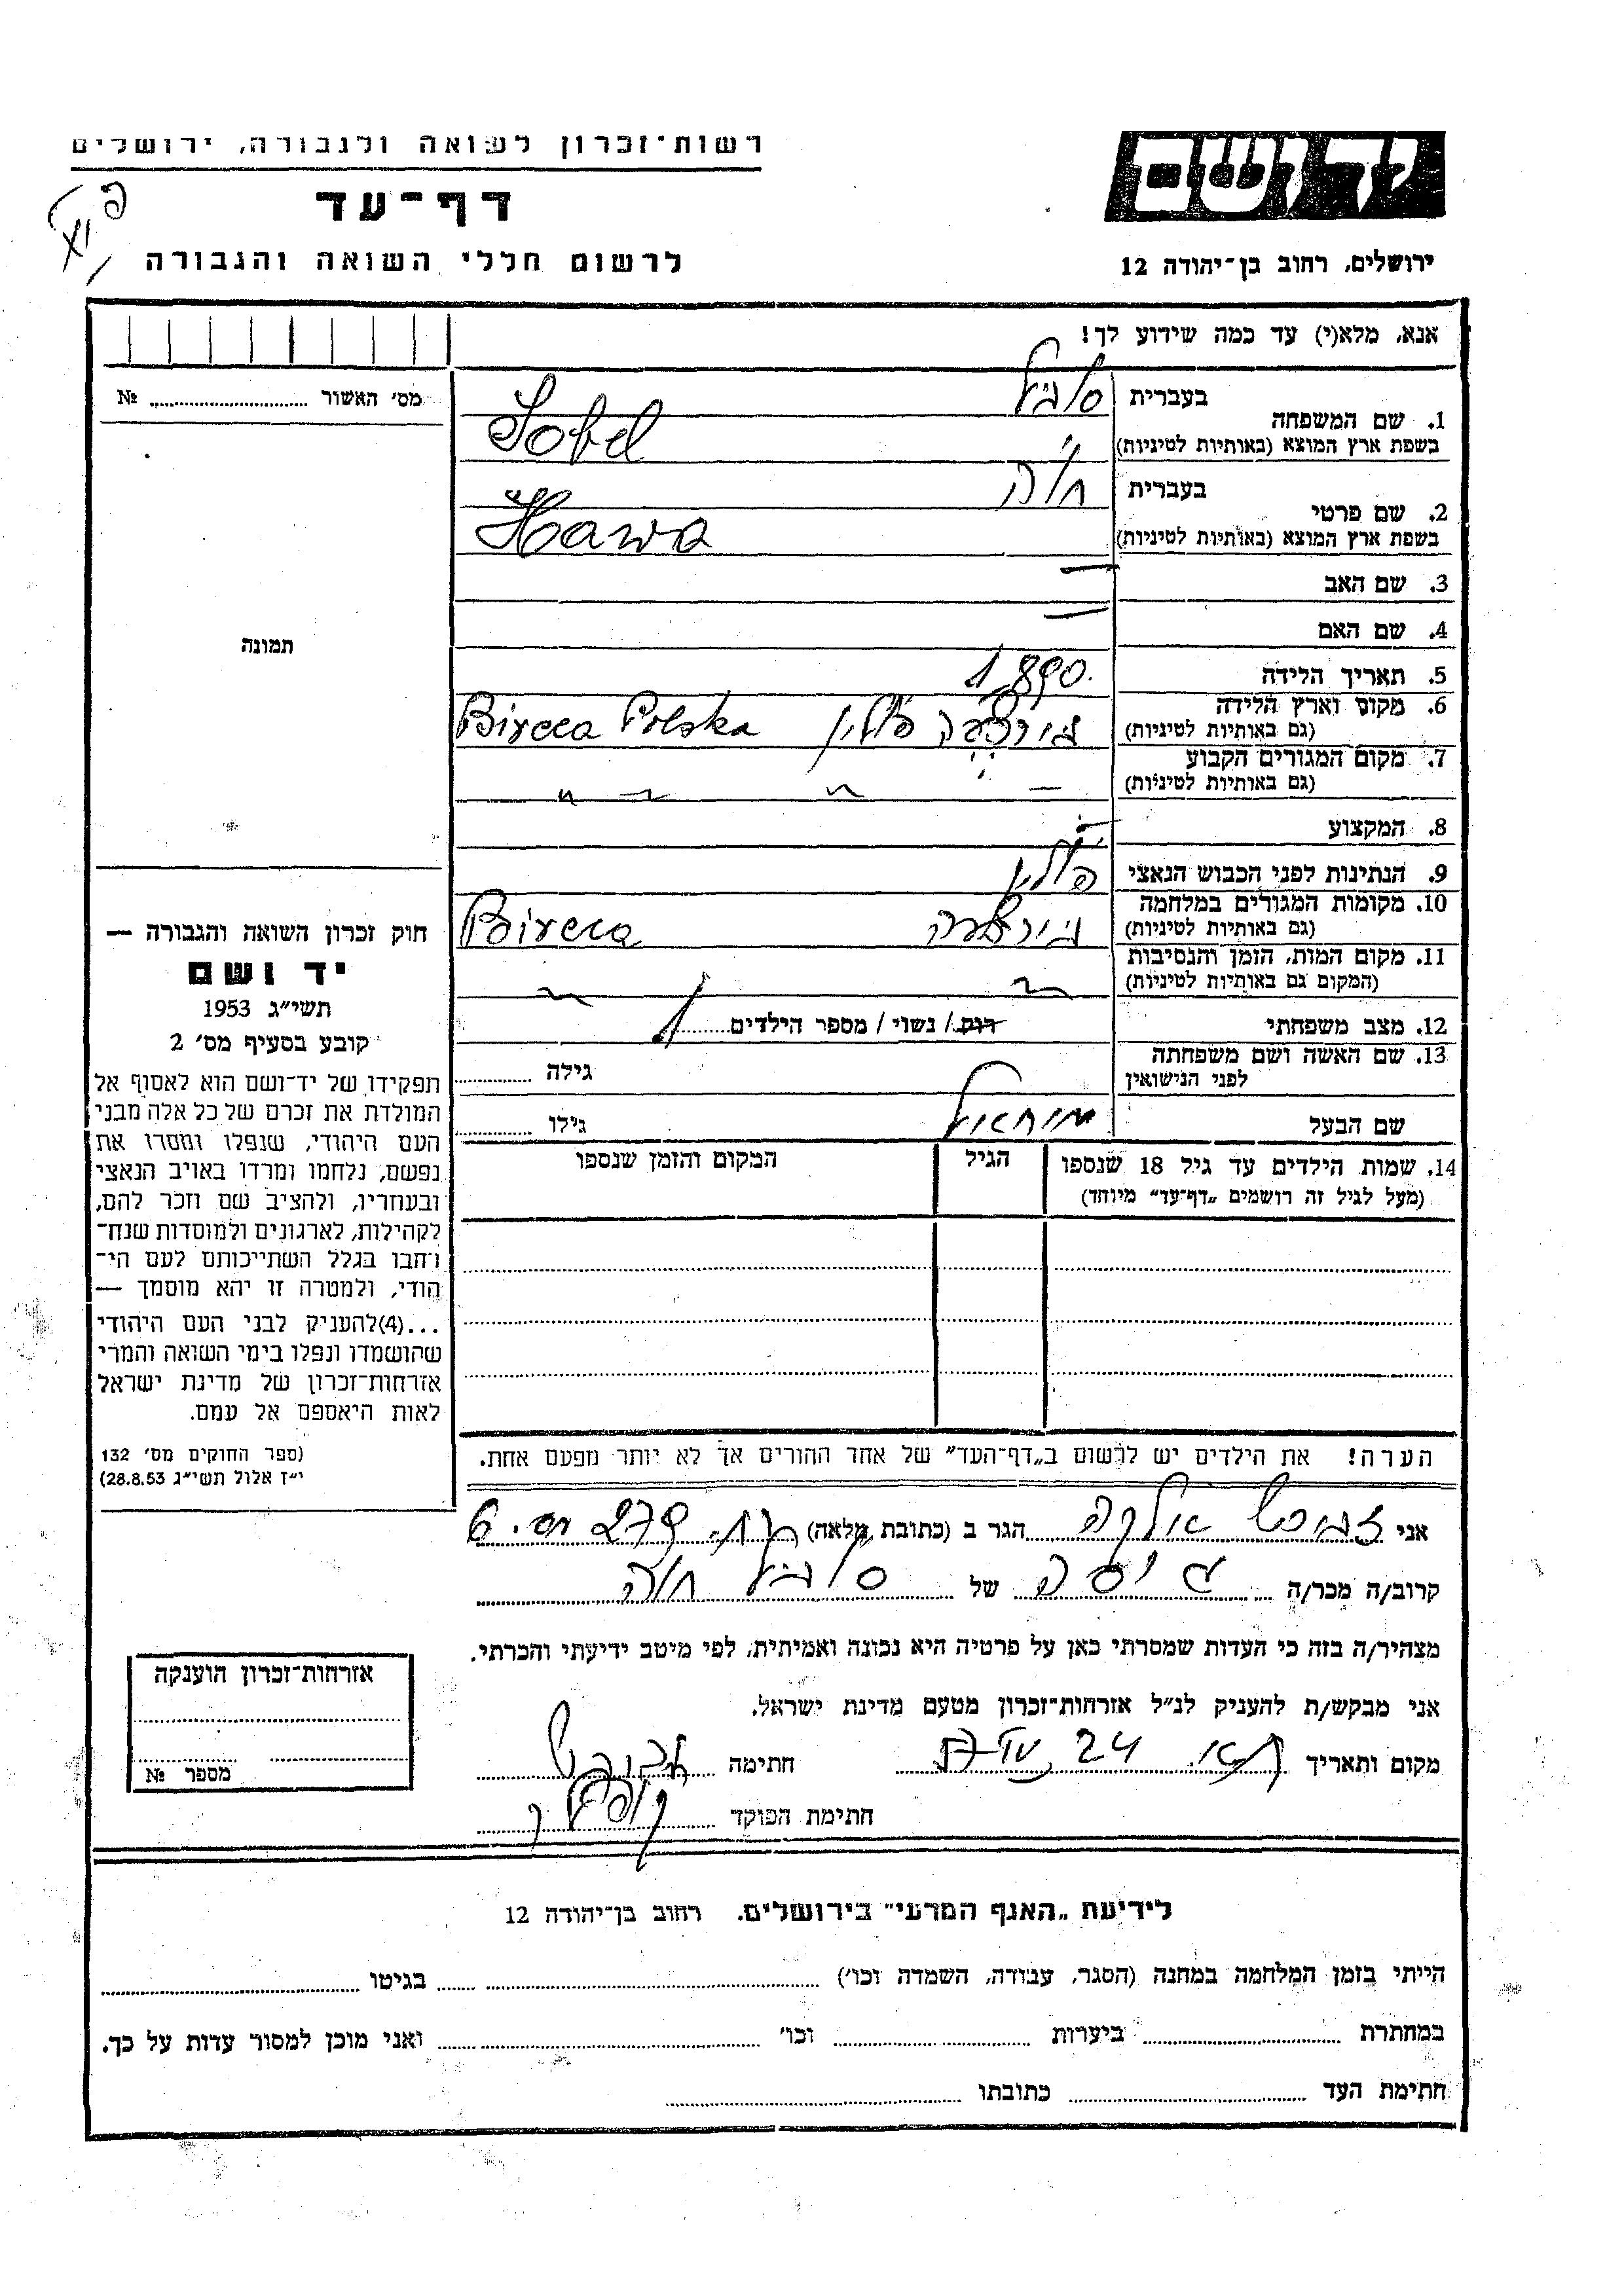 רשות-זכרון לשואה ולגבורה, ירושלים
יד ושם
דף-עד
לרשום חללי השואה והגבורה
ירושלים, רחוב בן-יהודה 12
אנא, מלא(י) עד כמה שידוע לך!
מס' האשור ........ №
1. שם המשפחה
בעברית סובל
בשפת ארץ המוצא (באותיות לטיניות) Sobel
2. שם פרטי
בעברית חוה
בשפת ארץ המוצא (באותיות לטיניות) Hawa
3. שם האב —
4. שם האם —
תמונה
5. תאריך הלידה 1890.
6. מקום וארץ הלידה
(גם באותיות לטיניות) בירצ'ה פולין Bircca Polska
7. מקום המגורים הקבוע
(גם באותיות לטיניות) — " — "
8. המקצוע —
9. הנתינות לפני הכבוש הנאצי פולין
10. מקומות המגורים במלחמה
(גם באותיות לטיניות) בירצ'ה Bircca
11. מקום המות, הזמן והנסיבות
(המקום גם באותיות לטיניות)
12. מצב משפחתי רוק / נשוי / מספר הילדים 1
13. שם האשה ושם משפחתה
לפני הנישואין גילה ........
שם הבעל גילו ........
14. שמות הילדים עד גיל 18 שנספו
(מעל לגיל זה רושמים „דף-עד" מיוחד)
הגיל
המקום והזמן שנספו
חוק זכרון השואה והגבורה —
יד ושם
תשי"ג 1953
קובע בסעיף מס' 2
תפקידו של יד-ושם הוא לאסוף אל
המולדת את זכרם של כל אלה מבני
העם היהודי, שנפלו ומסרו את
נפשם, נלחמו ומרדו באויב הנאצי
ובעוזריו, ולהציב שם וזכר להם,
לקהילות, לארגונים ולמוסדות שנח-
רבו בגלל השתייכותם לעם הי-
הודי, ולמטרה זו יהא מוסמך —
...(4)להעניק לבני העם היהודי
שהושמדו ונפלו בימי השואה והמרי
אזרחות-זכרון של מדינת ישראל
לאות היאספם אל עמם.
(ספר החוקים מס' 132
י"ז אלול תשי"ג 28.8.53)
הערה! את הילדים יש לרשום ב„דף-העד" של אחד ההורים אך לא יותר מפעם אחת.
אני הגר ב (כתובת מלאה) 279 6
קרוב/ה מכר/ה גיסה של סובל חוה
מצהיר/ה בזה כי העדות שמסרתי כאן על פרטיה היא נכונה ואמיתית, לפי מיטב ידיעתי והכרתי.
אני מבקש/ת להעניק לנ"ל אזרחות-זכרון מטעם מדינת ישראל.
מקום ותאריך 24 חתימה
חתימת הפוקד
אזרחות-זכרון הוענקה
מספר №
לידיעת „האגף המדעי" בירושלים. רחוב בן-יהודה 12
הייתי בזמן המלחמה במחנה (הסגר, עבודה, השמדה וכו') ........ בגיטו ........
במחתרת ........ ביערות ........ וכו' ........ ואני מוכן למסור עדות על כך.
חתימת העד ........ כתובתו ........